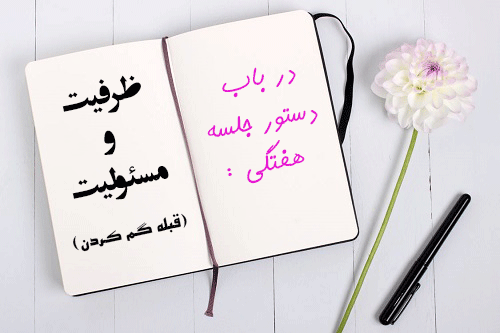 در باب
دستور جلسه
هفتگی :
ظرفیت
و
مسئولیت
(قبله گم کردن)